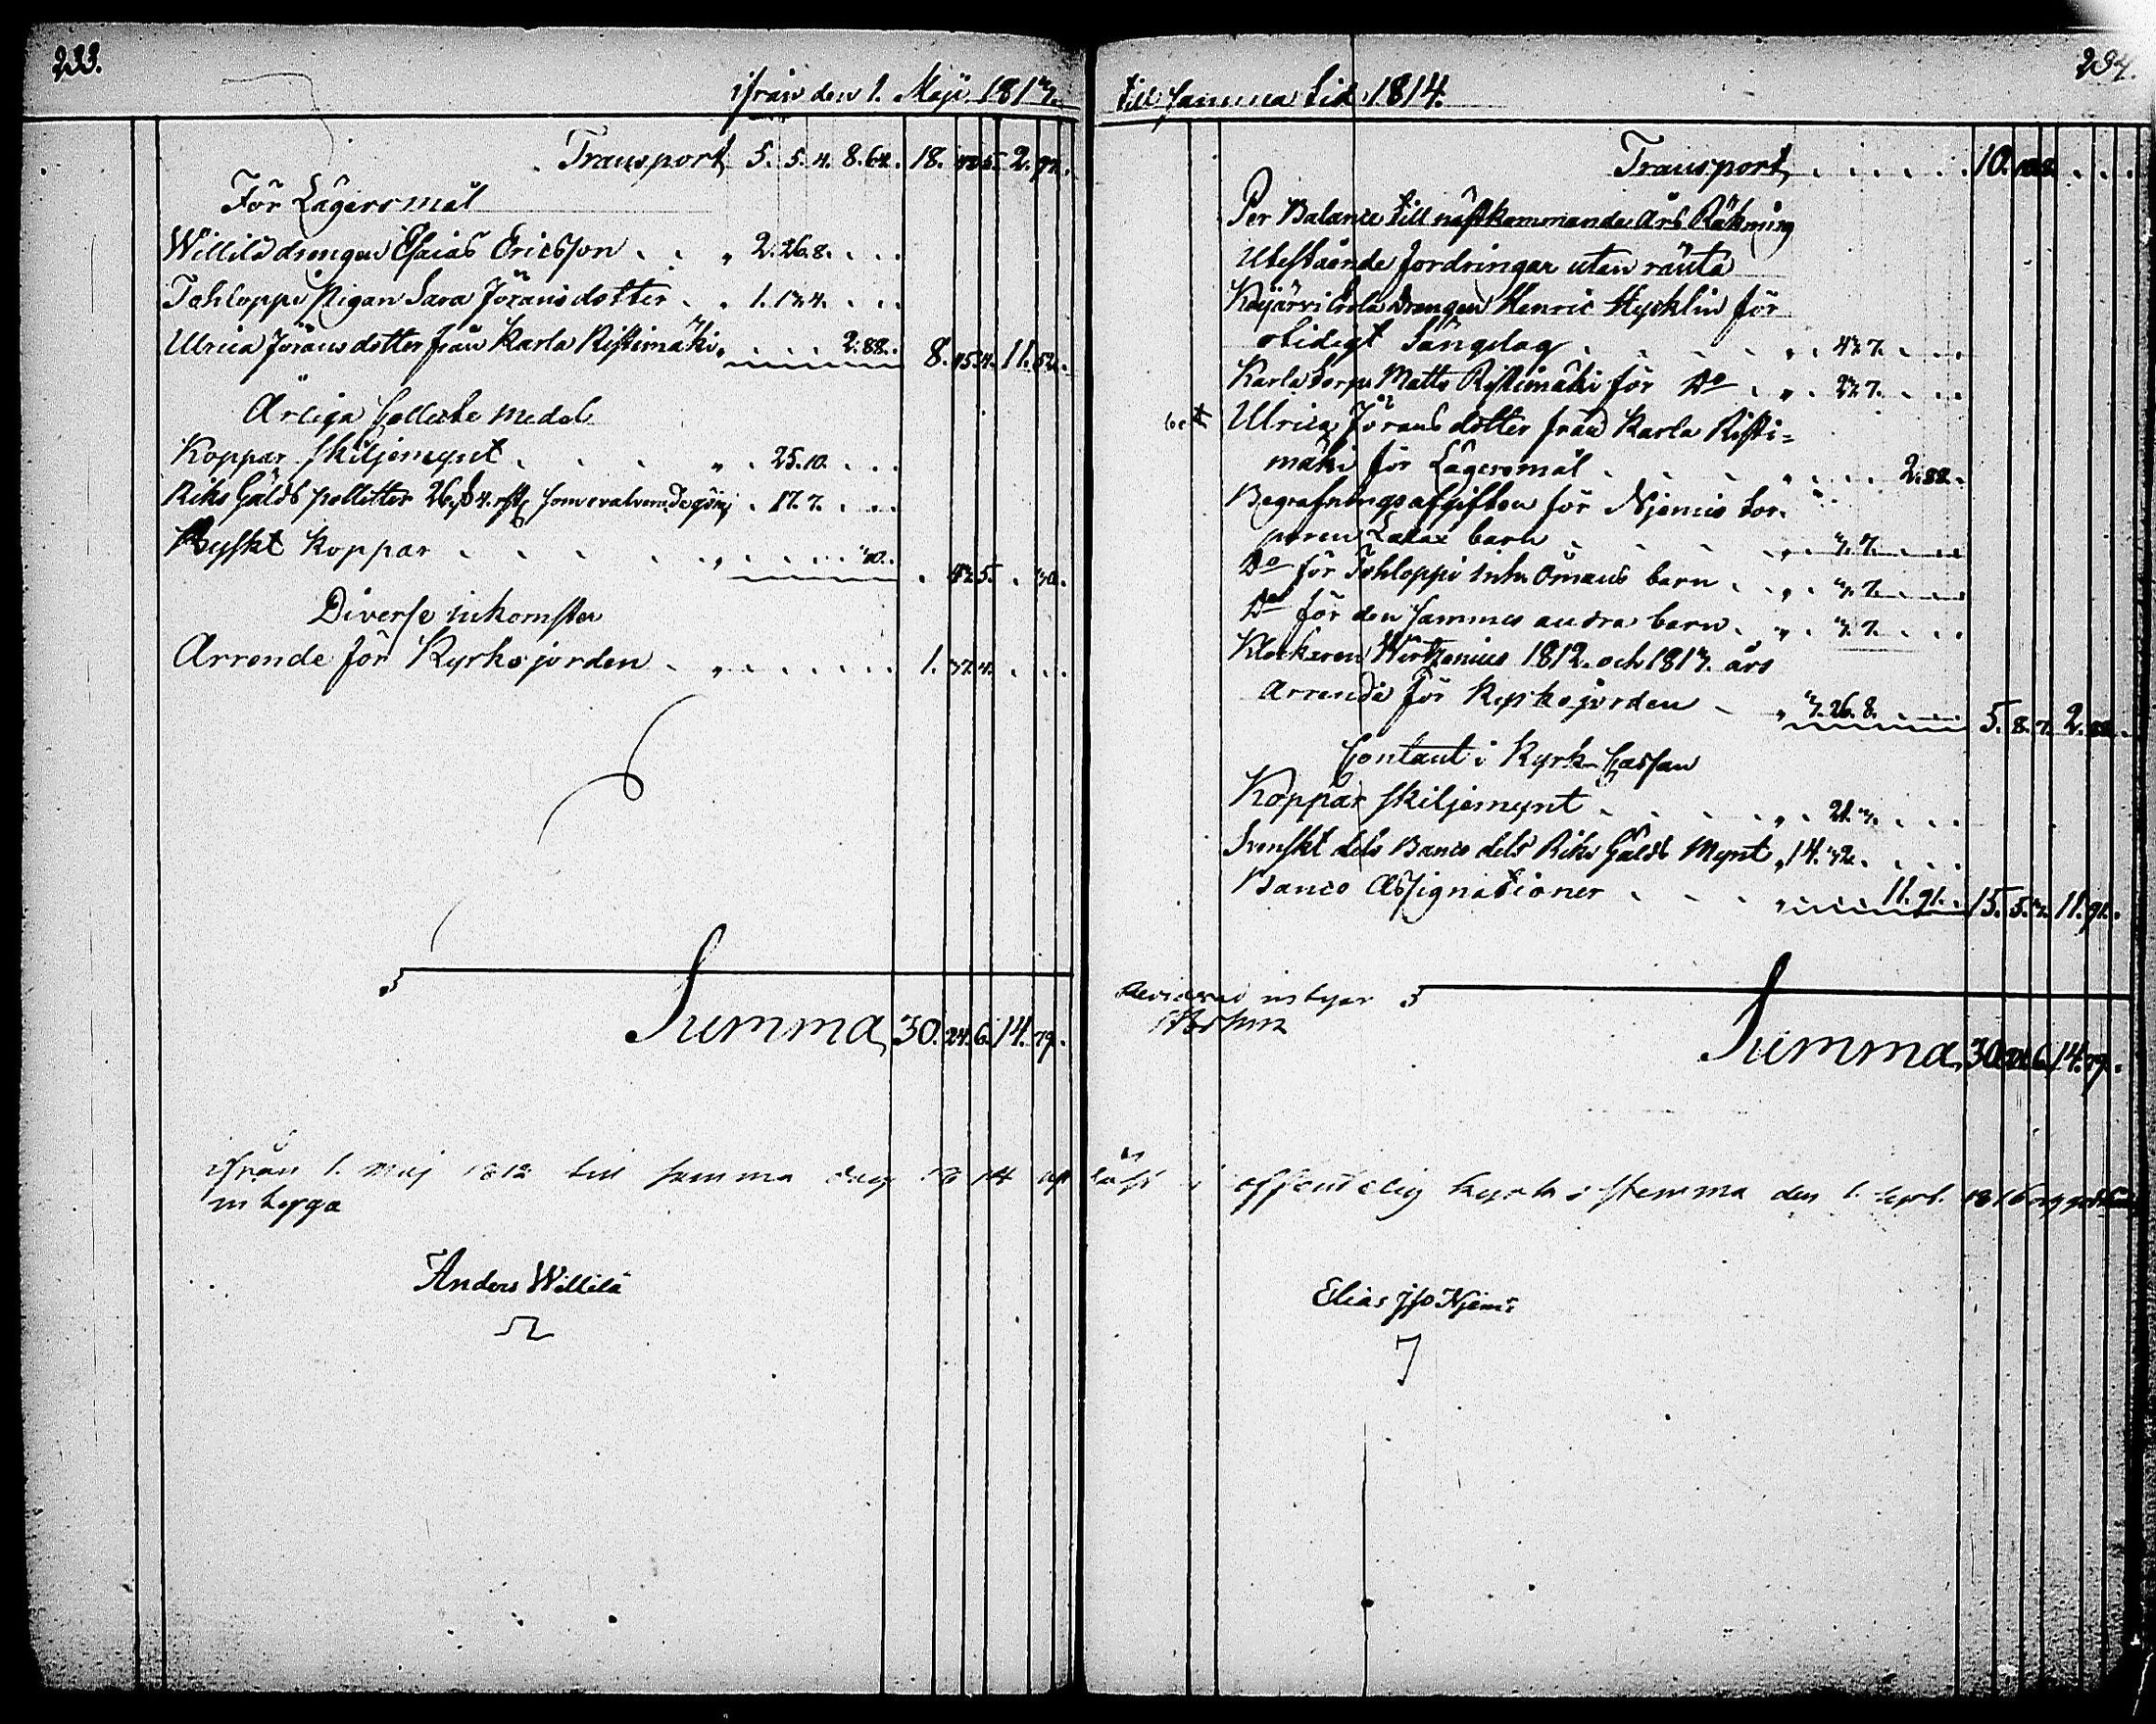 233.
ifrån den 1. Maji 1813.
Transport 5. 5. 4. 8. 64. 18. 43. 5. 2. 97.
För Lägersmål
Willilä drengen Esaias Ericsson . . „ 2. 26. 8. . . .
Tohloppi Pigan Sara Jöransdotter . „ 1. 13. 4. . . .
Ulrica Jöransdotter från Karla Ristimäki „ . . . . 2. 88. 8. 45. 4. 11. 52.
Årliga Collecte medel
Koppar skiljemynt . . . „ . 25. 10. . . .
Riks Gälds polletter 26 ß 4 rst som evalvera . 17. 7. . . .
Ryskt Koppar . . . . „ . . . . . 30. . 43. 5. . 30.
Diverse inkomster
Arrende för Kyrkojorden . „ . . . . . . 1. 37. 4. . . .
Summa 30. 24. 6. 14. 79.
ifrån 1. maj 1812 till samma dag 1814 up
intyga
Anders Willilä
234.
till samma tid 1814.
Transport . . . . . . 10. . . .
Per Balance till nästkommande Års Räkning
Utestående fordringar utan ränta
Kyjärvi Torla drengen Henric Hycklin för
otidigt Sänglag . . . . „ . 43. 7. . . .
Karla Torp. Matts Ristimäki för Do . „ . 23. 7. . . .
Ulrica Jöransdotter från Karla Risti=
mäki för Lägersmål . . . . „ . . . . 2. 88.
Begrafningsafgiften för Njemis tor.
paren barn . . . „ . 3. 7. . . .
Do för Tohloppi inh. Ömans barn . . „ . 3. 7. . . .
Do för den sammes andra barn . „ . 3. 7. . . .
Klockaren Wirzenius 1812. och 1813. års
Arrende för Kyrkojorden . „ 3. 26. 8. . . . 5. 8. 7. 2. 88.
Contant i Kyrk-Cassan
Koppar skiljemynt . . . . „ . 21. 3. . . .
Svenskt dels Banco dels Riks Gälds Mynt „ 14. 32. . . . .
Banco Assignationer . . . „ . . . . 11. 91. 15. 5. 3. 11. 91.
Reviderad intygar
Summa 30. 24. 6. 14. 79.
läst i offentelig kyrko stemma den 1. sept. 1816
Elias Njemi